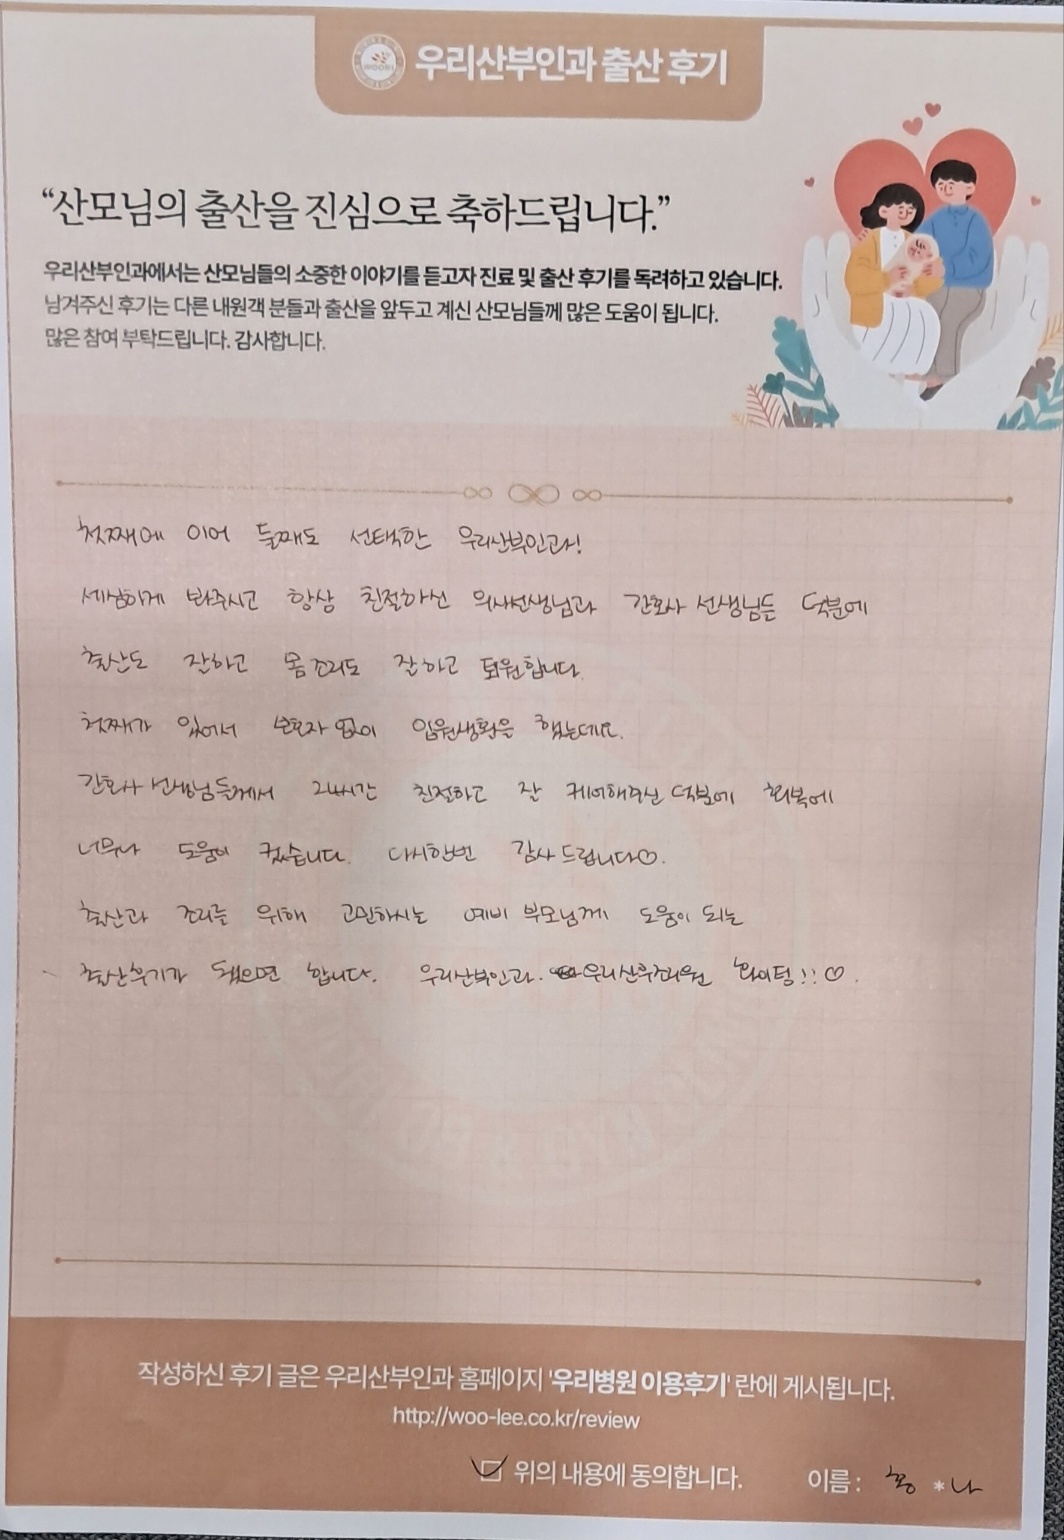 우리산부인과 출산 후기
“산모님의 출산을 진심으로 축하드립니다.”
우리산부인과에서는 산모님들의 소중한 이야기를 듣고자 진료 및 출산 후기를 독려하고 있습니다.
남겨주신 후기는 다른 내원객 분들과 출산을 앞두고 계신 산모님들께 많은 도움이 됩니다.
많은 참여 부탁드립니다. 감사합니다.
첫째에 이어 둘째도 선택한 우리산부인과!
세심하게 봐주시고 항상 친절하신 의사선생님과 간호사 선생님들 덕분에
출산도 잘하고 몸조리도 잘하고 퇴원합니다.
첫째가 있어서 보호자 없이 입원생활을 했는데요.
간호사 선생님들께서 24시간 친절하고 잘 케어해주신 덕분에 회복에
너무나 도움이 컸습니다. 다시한번 감사드립니다♡.
출산과 조리를 위해 고민하시는 예비 부모님께 도움이 되는
출산후기가 됐으면 합니다. 우리산부인과. 우리산후조리원 화이팅!!♡.
작성하신 후기 글은 우리산부인과 홈페이지 '우리병원 이용후기' 란에 게시됩니다.
http://woo-lee.co.kr/review
위의 내용에 동의합니다. 이름 : *나